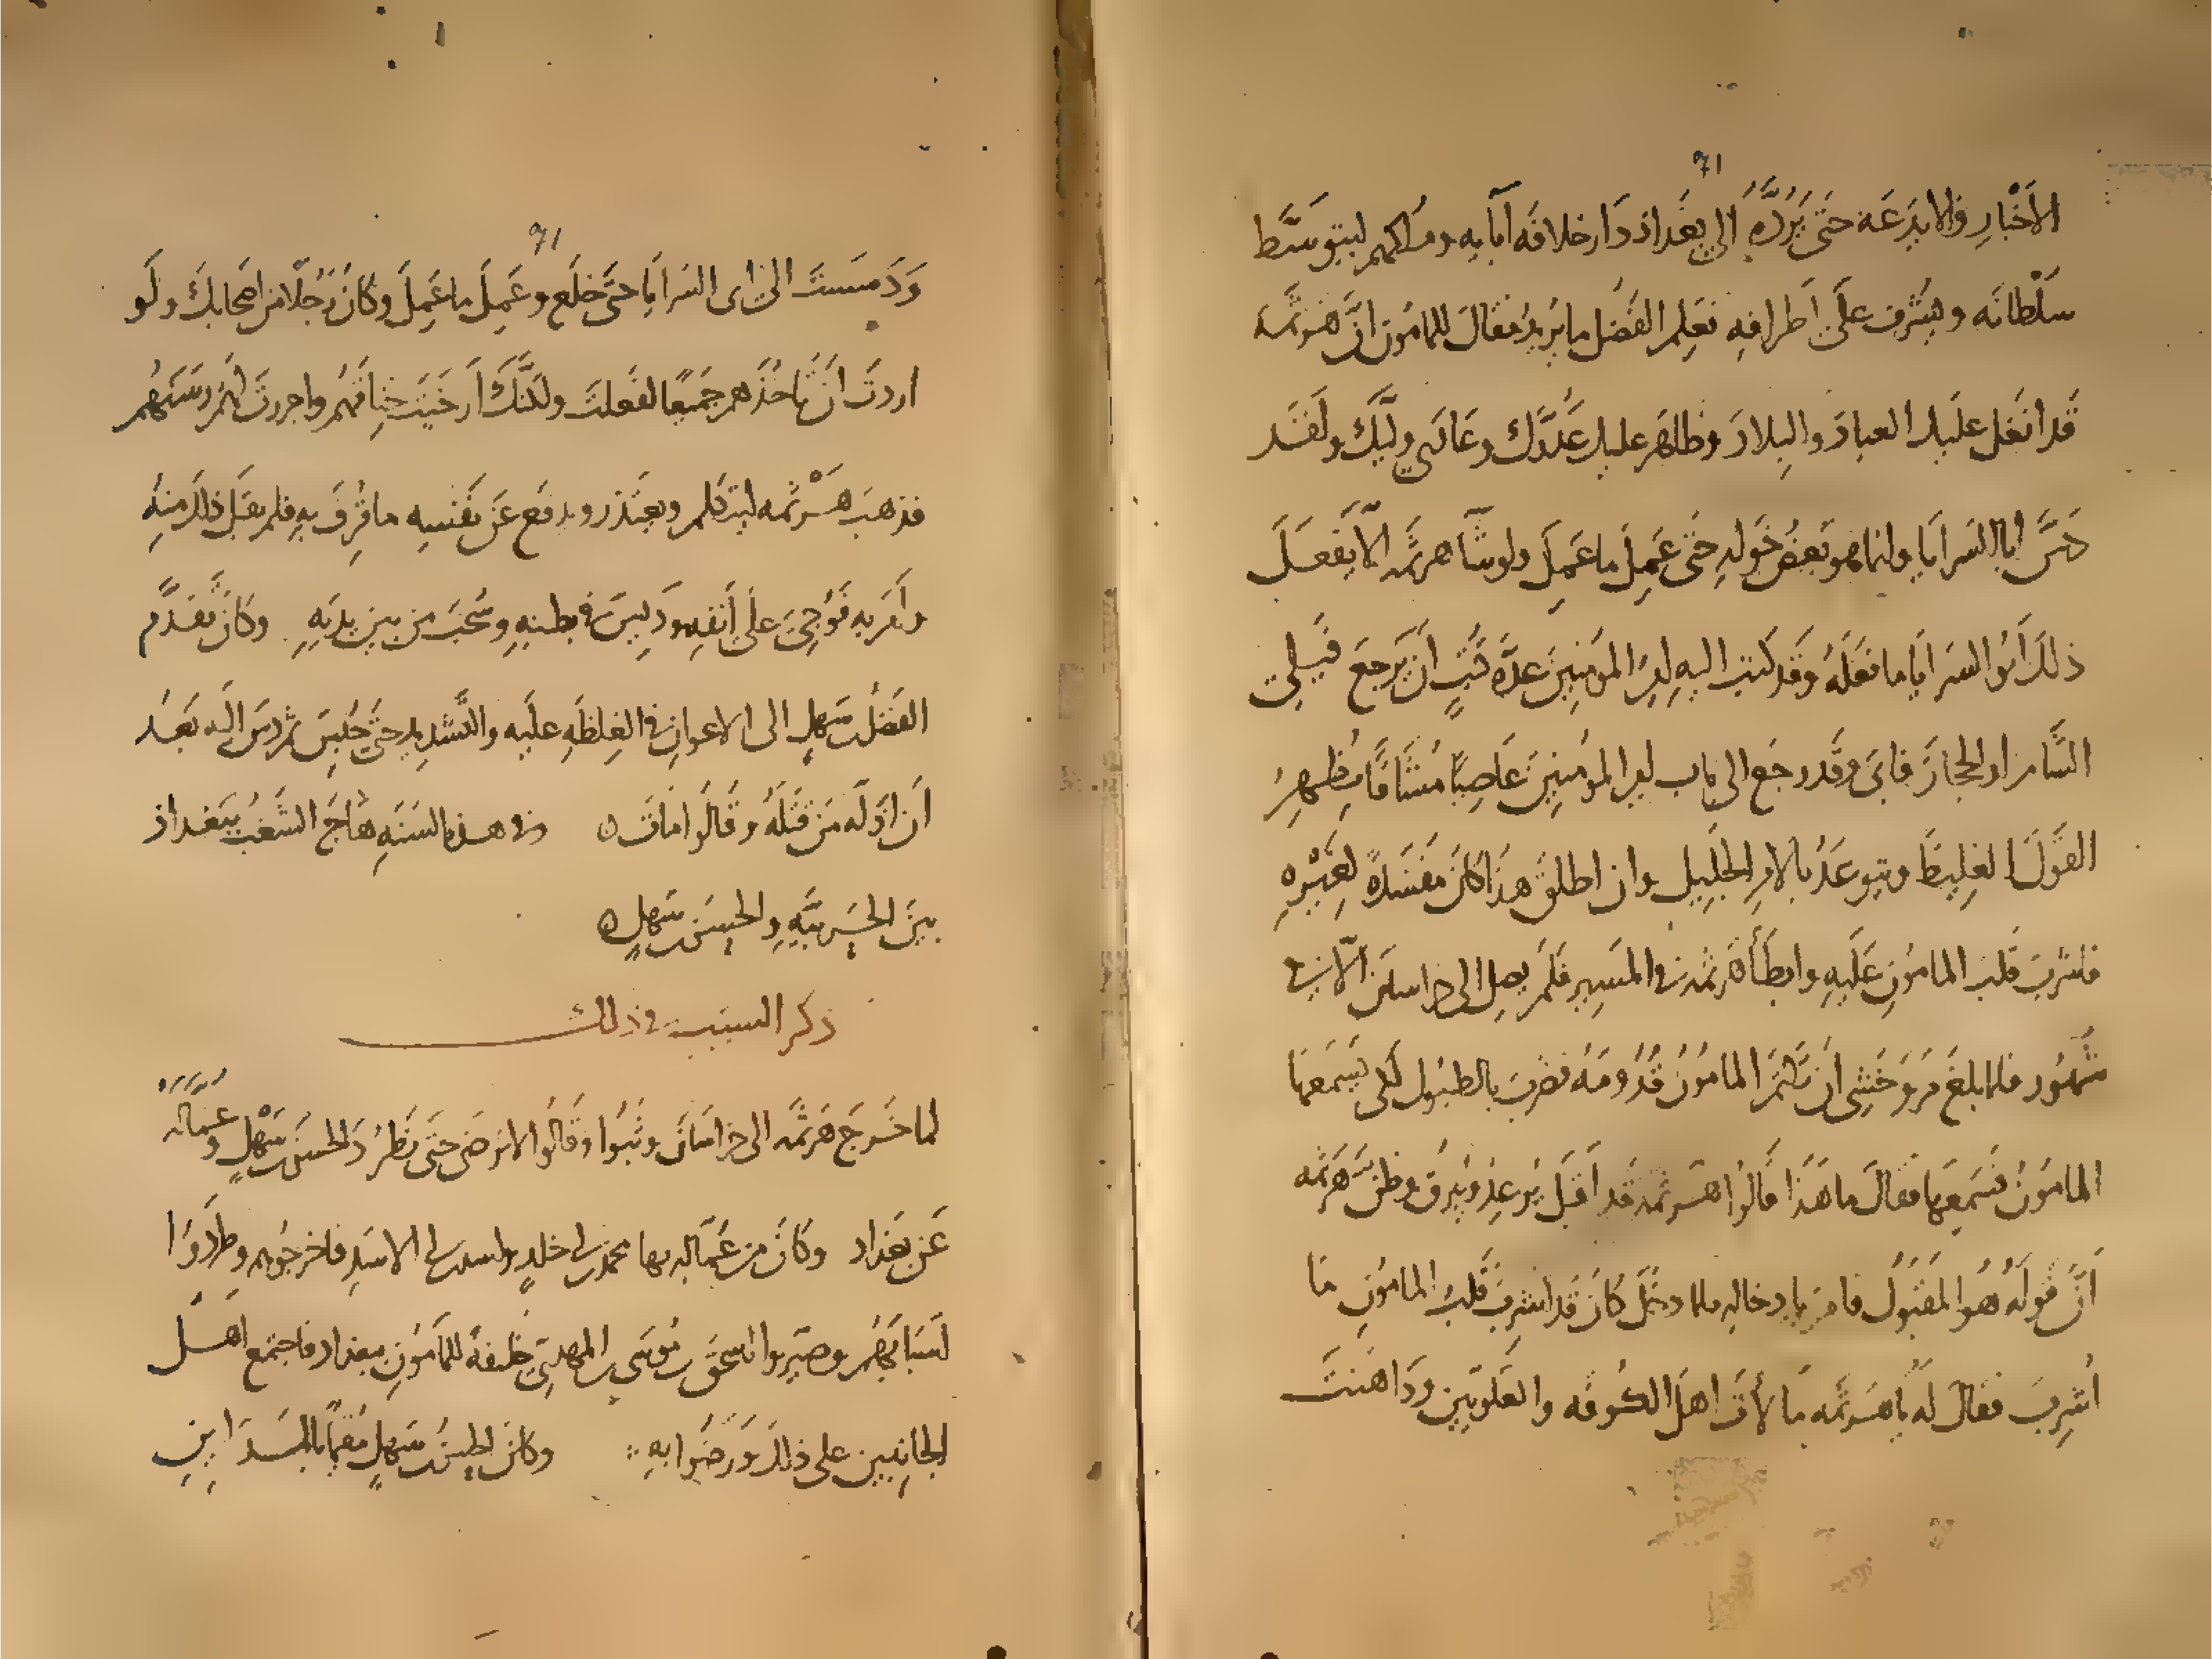 ٩١
الاخْبارِ ولا يدَعَه حتى يَرُدَّهُ الى بغداذ دَار خلافه آبايه وملكهم ليتوسَّط
سلْطانَه ويشرف على اطرافِه فعَلِم الفَضْل ما يُريدُ فقال للمامون انَّ هرثمَه
قد انغل عليك العبادَ والبِلادَ وظاهَر عليك عَدُوَّك وعَادَى وليَّك ولقَد
دَسَّ ابا السَرايا وانما هو بَعضُ خَوَلِهِ حَتى عَمِلَ ما عَمِلَ ولو شآ هرثمه الّا يفعَل
ذلك ابُو السَرايا ما فَعَلَهُ وقَد كتب اليهِ امِيرُ المؤمِنِينَ عدَّه كُتُبٍ اَن يَرجعَ فيَلِى
الشَّام او الحجازَ فابى وقَد رجَع الى باب امِير المؤمِنِينَ عاصِيًا مُشَاقًّا يُظهِرُ
القَولَ الغلِيظَ ويتوعَدُ بالامرِ الجلِيل وان اطلق هذا كان مَفسَدةً لغَيْرِهِ
فاشرِبَ قلب المامون عَليهِ وابطَأ هرثمه فى المَسِيرِ فلم يصِل الى خراسان الّا فى
شهُور فلما بلغَ مروَ خشِى ان يُكتَمَ المامونُ قُدُومَهُ فضرَبَ بالطبُولِ لكى يسمَعها
المامونُ فسَمِعَها فقال ما هَذا قالُوا هَرثمه قد اَقبَل يُرعِدُ ويُبرِقُ وظن هَرثمه
اَنَّ قولَهُ هُو المقبُولُ فامَر بادخالِهِ فلما دخل كان قد اُشرِبَ قَلبُ المامونِ ما
اُشرِبَ فقال لَهُ يا هَرثمه مَالأتَ اهلَ الكُوفه والعَلوِيّين ودَاهَنتَ
٩١
وَدَسَستَ الى ابى السَرايا حتَّى خلَع وعَمِلَ ما عَمِلَ وكانَ رَجُلًا من اصحابك ولَو
اردتَ ان تاخُذَهم جَميعًا لفَعلتَ ولكنَّك اَرخَيتَ خِناقَهُم واجررتَ لهم رسَنَهُم
فذهبَ هَرثمه ليتكلم ويعتذر ويدفَع عَن نفسِه ما قُرِفَ بهِ فلم يقبَل ذلك منه
وامَر بهِ فوُجِئَ على اَنفِهِ ودِيسَ فى بطنِهِ وسُحِبَ من بين يدَيهِ وكان تَقَدَّم
الفَضلُ بن سَهلٍ الى الاعوانِ فى الغِلظَهِ عليه والتَّشدِيدِ حَتى حُبِسَ ثم دَسَّ اليه بَعدُ
اَن اوله مَن قتلَهُ وقالُوا ماتَ ه وفى هذه السَنَهِ هاجَ الشَغبُ ببغداذ
بينَ الحَربيَّهِ والحَسَن بن سَهلٍ ه
ذكر السبب فى ذلك
لما خَرج هَرثمه الى خراسَان وثبُوا وقَالُوا لا نرضى حَتى نَطرُد الحسَن بن سَهْلٍ وعمّالَه
عَن بغداد وكانَ من عُمّاله بها محمد بن ابى خلدٍ واسد بن ابى الاسَدِ فاخرجُوهم وطرَدُوا
اسَبابهُم وصَيّروا اسحق بن مُوسَى بن المهدِىّ خليفهً للمامُونِ ببغداد فاجتمع اهل
الجانِبين على ذلك ورضُوا بهِ وكان الحسَنُ بن سَهلٍ مقِيمًا بالمدَاينِ